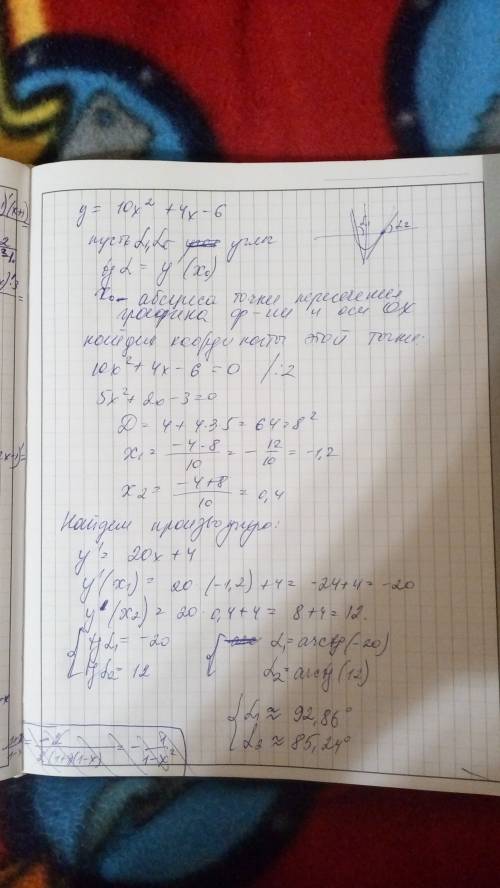 y = 10x² + 4x - 6
пусть L₁, L₂ углы
tg L = y (x₀)
x₀ - абсциса точки пересечения
графика ф-ии и оси OX
найдем координаты этой точки.
10x² + 4x - 6 = 0 /:2
5x² + 2x - 3 = 0
D = 4 + 4·3·5 = 64 = 8²
x₁ = (-4-8)/10 = -12/10 = -1,2
x₂ = (-4+8)/10 = 0,4
Найдем производную:
y' = 20x + 4
y'(x₁) = 20 (-1,2) + 4 = -24+4 = -20
y'(x₂) = 20·0,4+4 = 8+4 = 12.
{ tg L₁ = -20 { L₁ = arctg(-20)
tg L₂ = 12 L₂ = arctg(12)
{ L₁ ≈ 92,86°
L₂ ≈ 85,24°